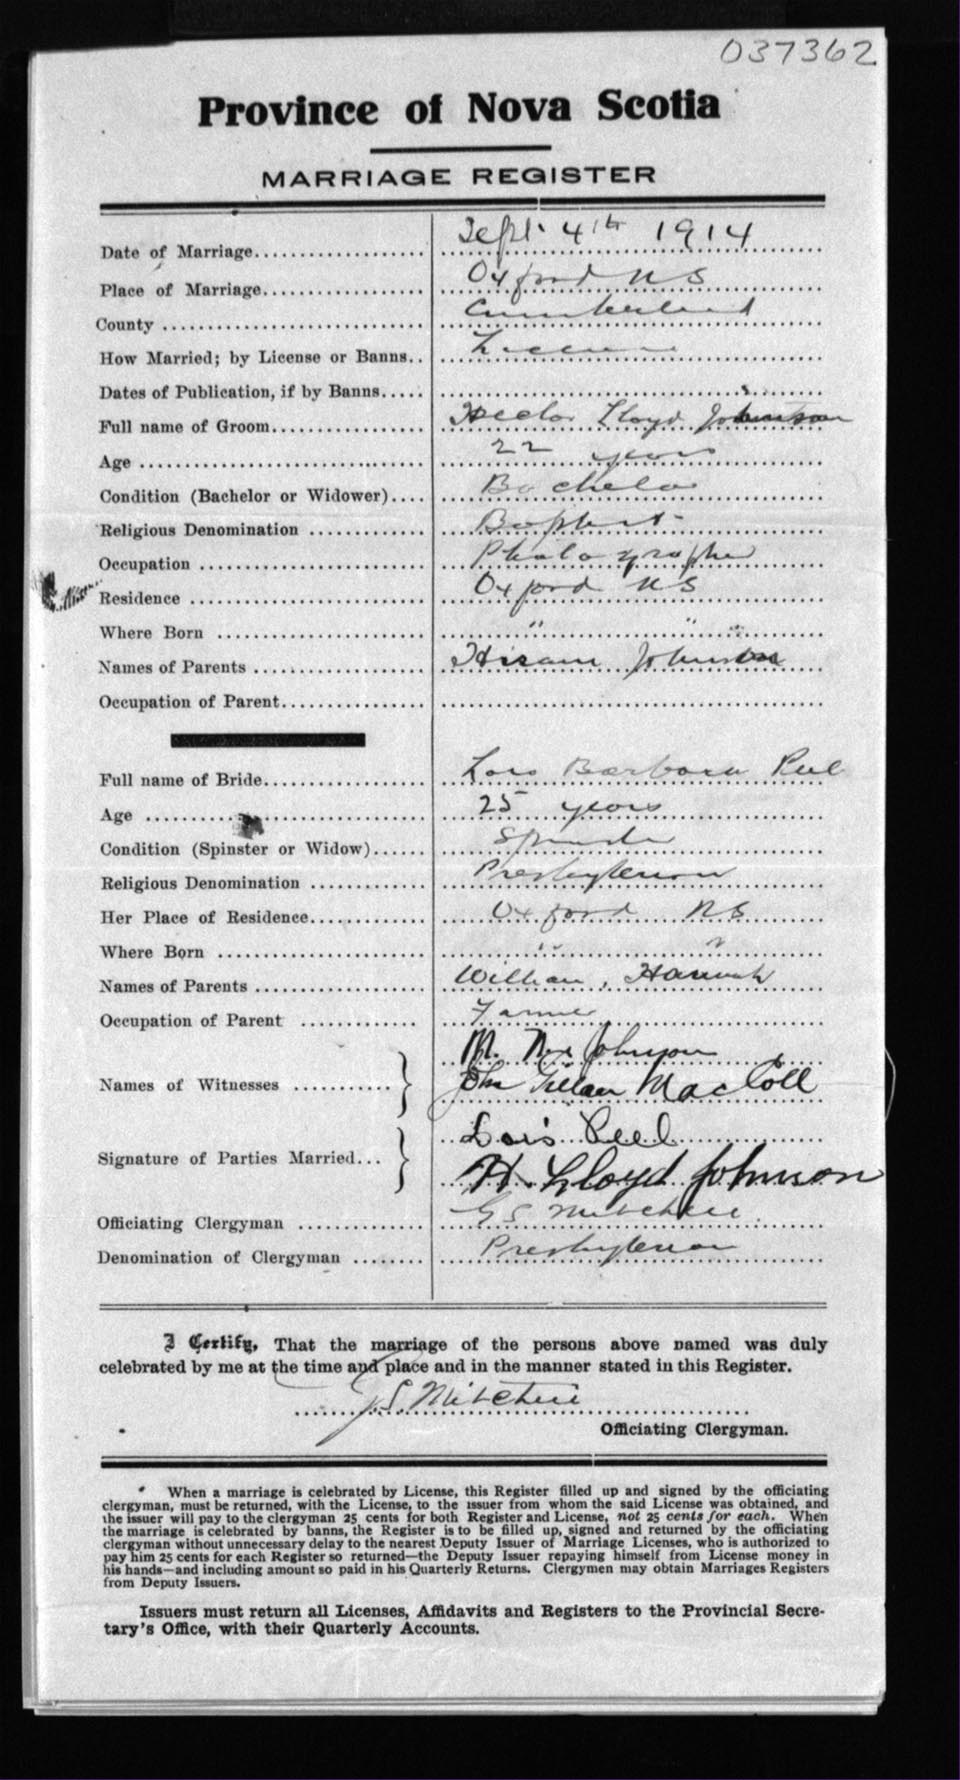 037362
Province of Nova Scotia
MARRIAGE REGISTER
Date of Marriage Sept. 4th 1914
Place of Marriage Oxford NS
County Cumberland
How Married; by License or Banns License
Dates of Publication, if by Banns
Full name of Groom Hector Lloyd Johnson
Age 22 years
Condition (Bachelor or Widower) Bachelor
Religious Denomination Baptist
Occupation Photographer
Residence Oxford NS
Where Born " " "
Names of Parents Hiram Johnson
Occupation of Parent
Full name of Bride Lois Barbara Peel
Age 25 years
Condition (Spinster or Widow) Spinster
Religious Denomination Presbyterian
Her Place of Residence Oxford NS
Where Born " "
Names of Parents William, Hannah
Occupation of Parent Farmer
M. Johnson
Names of Witnesses John MacColl
Lois Peel
Signature of Parties Married H. Lloyd Johnson
Officiating Clergyman G S Mitchell
Denomination of Clergyman Presbyterian
I Certify, That the marriage of the persons above named was duly
celebrated by me at the time and place and in the manner stated in this Register.
G.S. Mitchell
Officiating Clergyman.
When a marriage is celebrated by License, this Register filled up and signed by the officiating
clergyman, must be returned, with the License, to the issuer from whom the said License was obtained, and
the issuer will pay to the clergyman 25 cents for both Register and License, not 25 cents for each. When
the marriage is celebrated by banns, the Register is to be filled up, signed and returned by the officiating
clergyman without unnecessary delay to the nearest Deputy Issuer of Marriage Licenses, who is authorized to
pay him 25 cents for each Register so returned—the Deputy Issuer repaying himself from License money in
his hands—and including amount so paid in his Quarterly Returns. Clergymen may obtain Marriages Registers
from Deputy Issuers.
Issuers must return all Licenses, Affidavits and Registers to the Provincial Secre-
tary's Office, with their Quarterly Accounts.